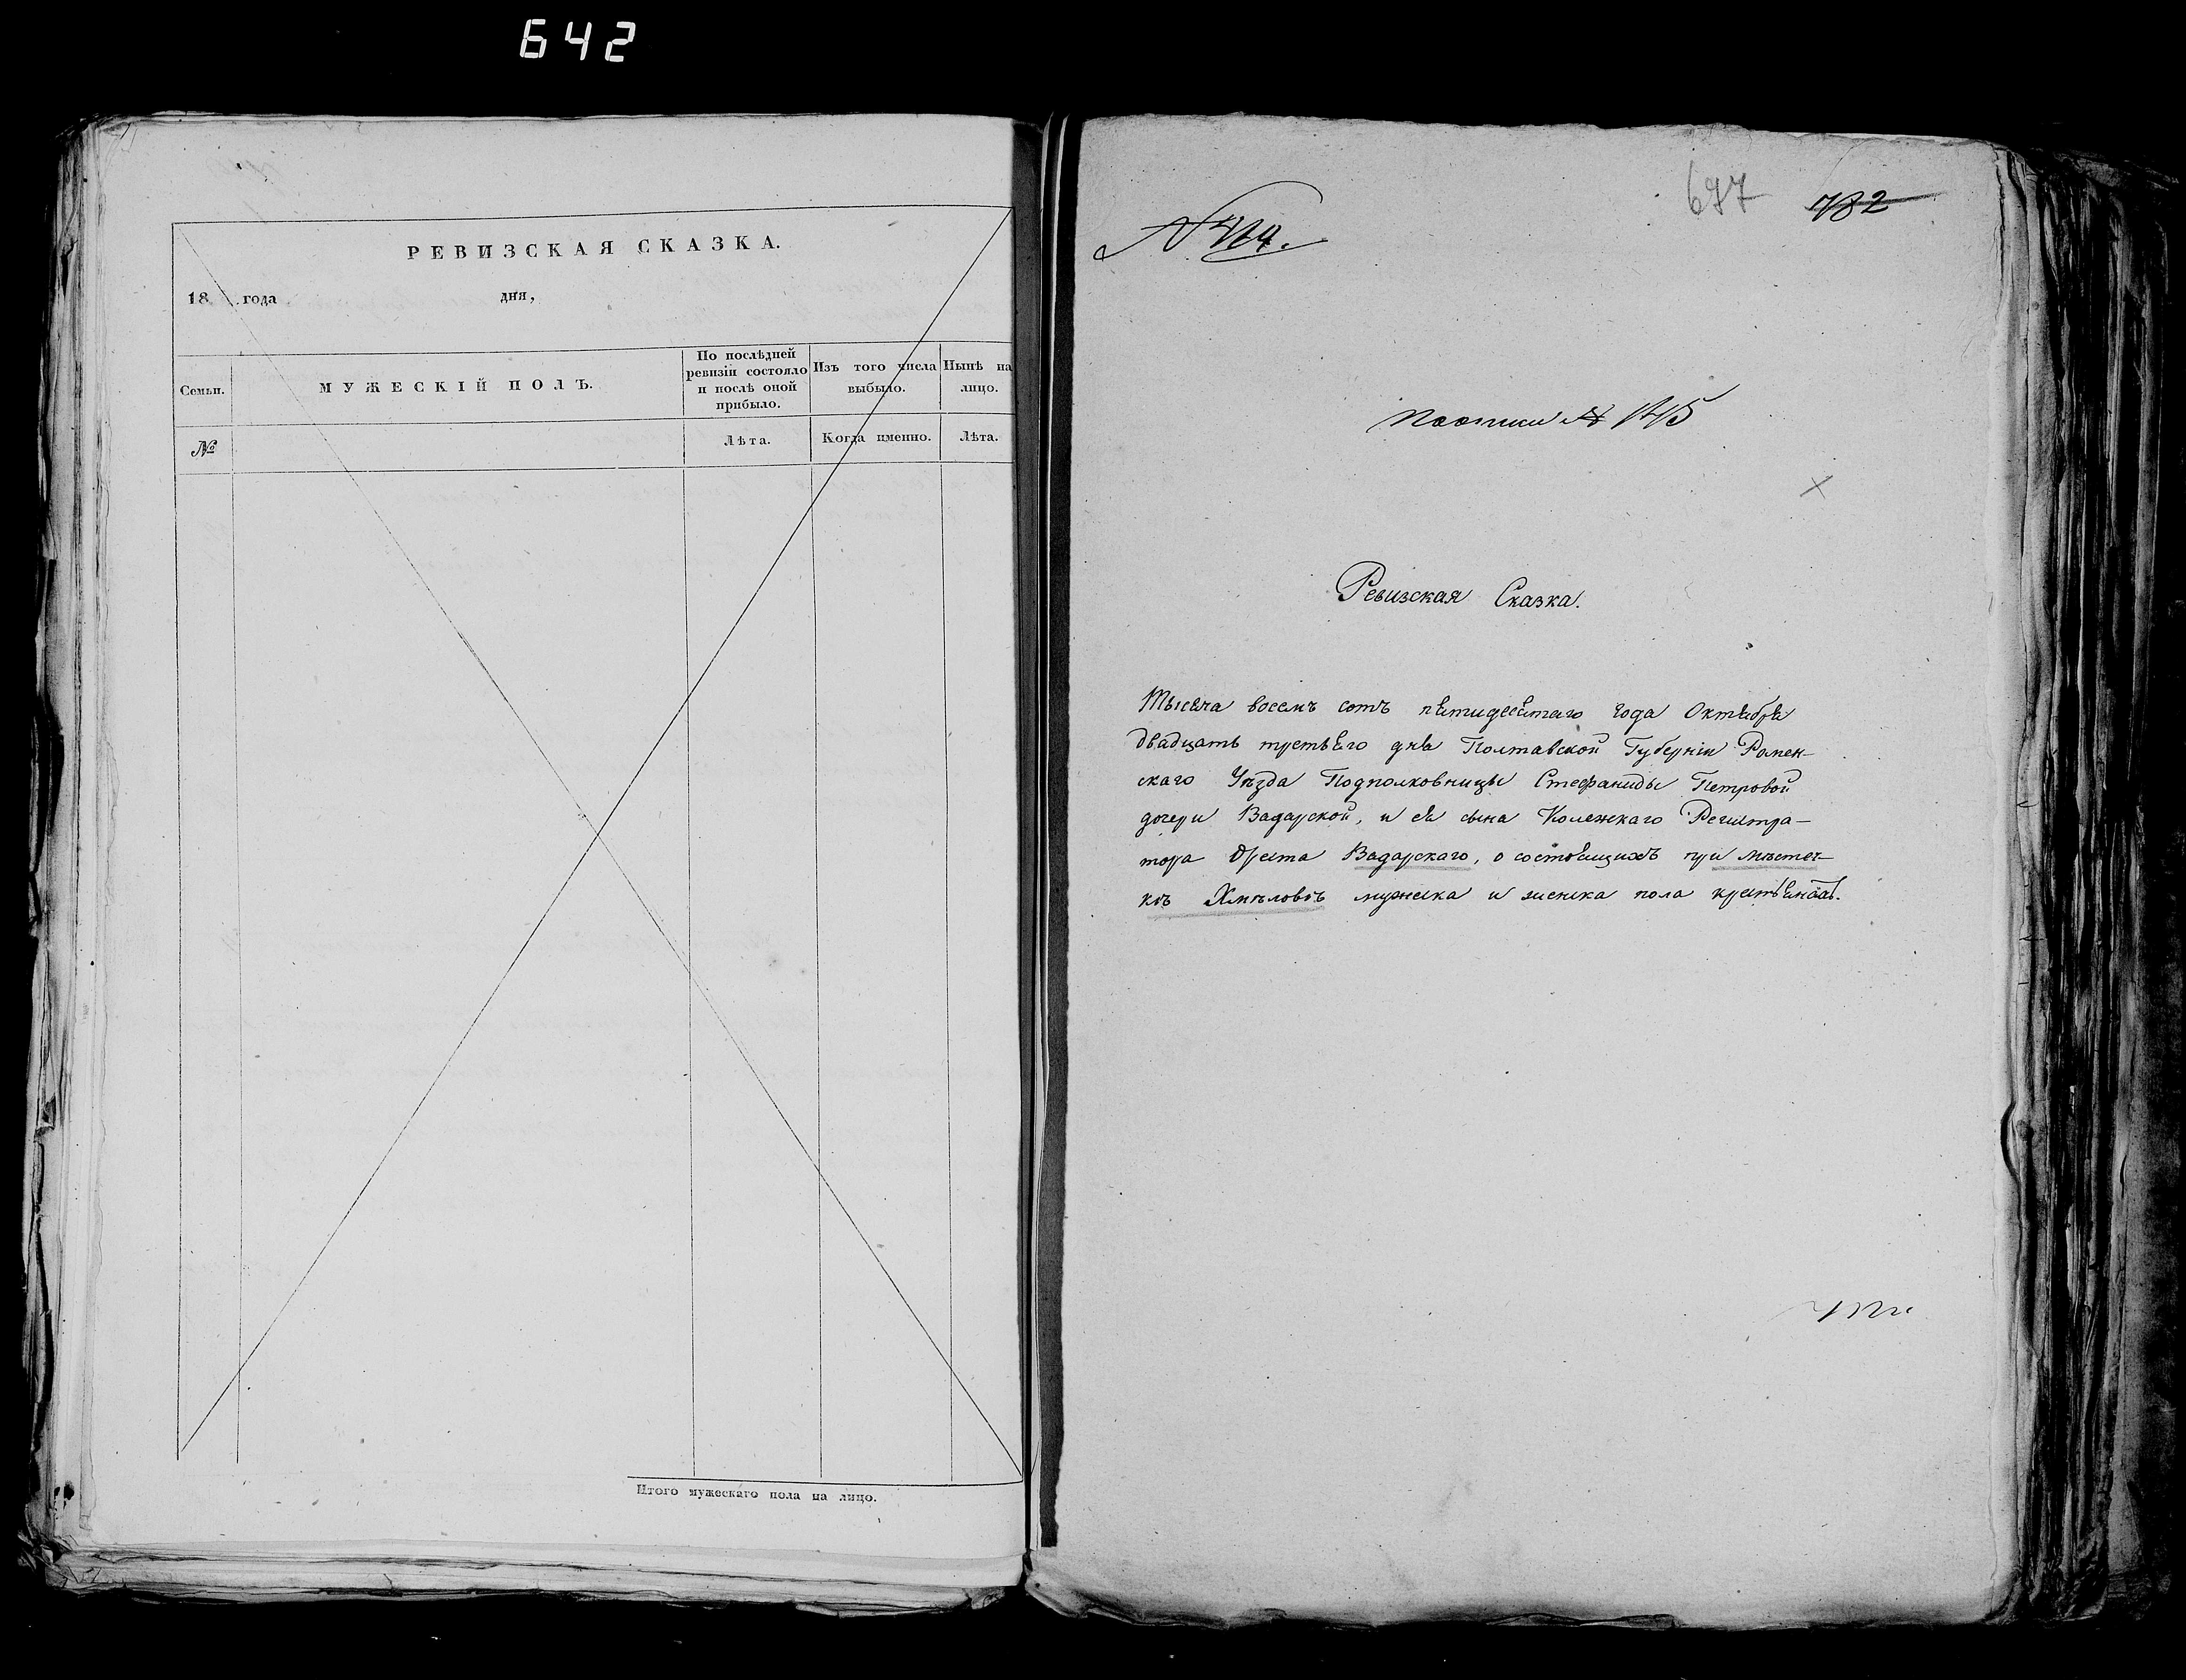 642
РЕВИЗСКАЯ СКАЗКА.
18 года дня,
Семьи.
МУЖЕСКІЙ ПОЛЪ.
По послѣдней ревизіи состояло и послѣ оной прибыло.
Изъ того числа выбыло.
Нынѣ на лицо.
№
Лѣта.
Когда именно.
Лѣта.
Итого мужескаго пола на лицо.
687 782
Ревизская Сказка.
Тысяча восемъ сотъ пятидесятаго года Октября
двадцать третьяго дня Полтавской Губерніи Ромен-
скаго Уѣзда Подполковницы Стефаниды Петровой
дочери Вадарской, и ея сына Колежскаго Регистра-
тора Ореста Вадарскаго, о состоящихъ при мѣстеч-
кѣ Хмѣловѣ мужеска и женска пола крестьянахъ.